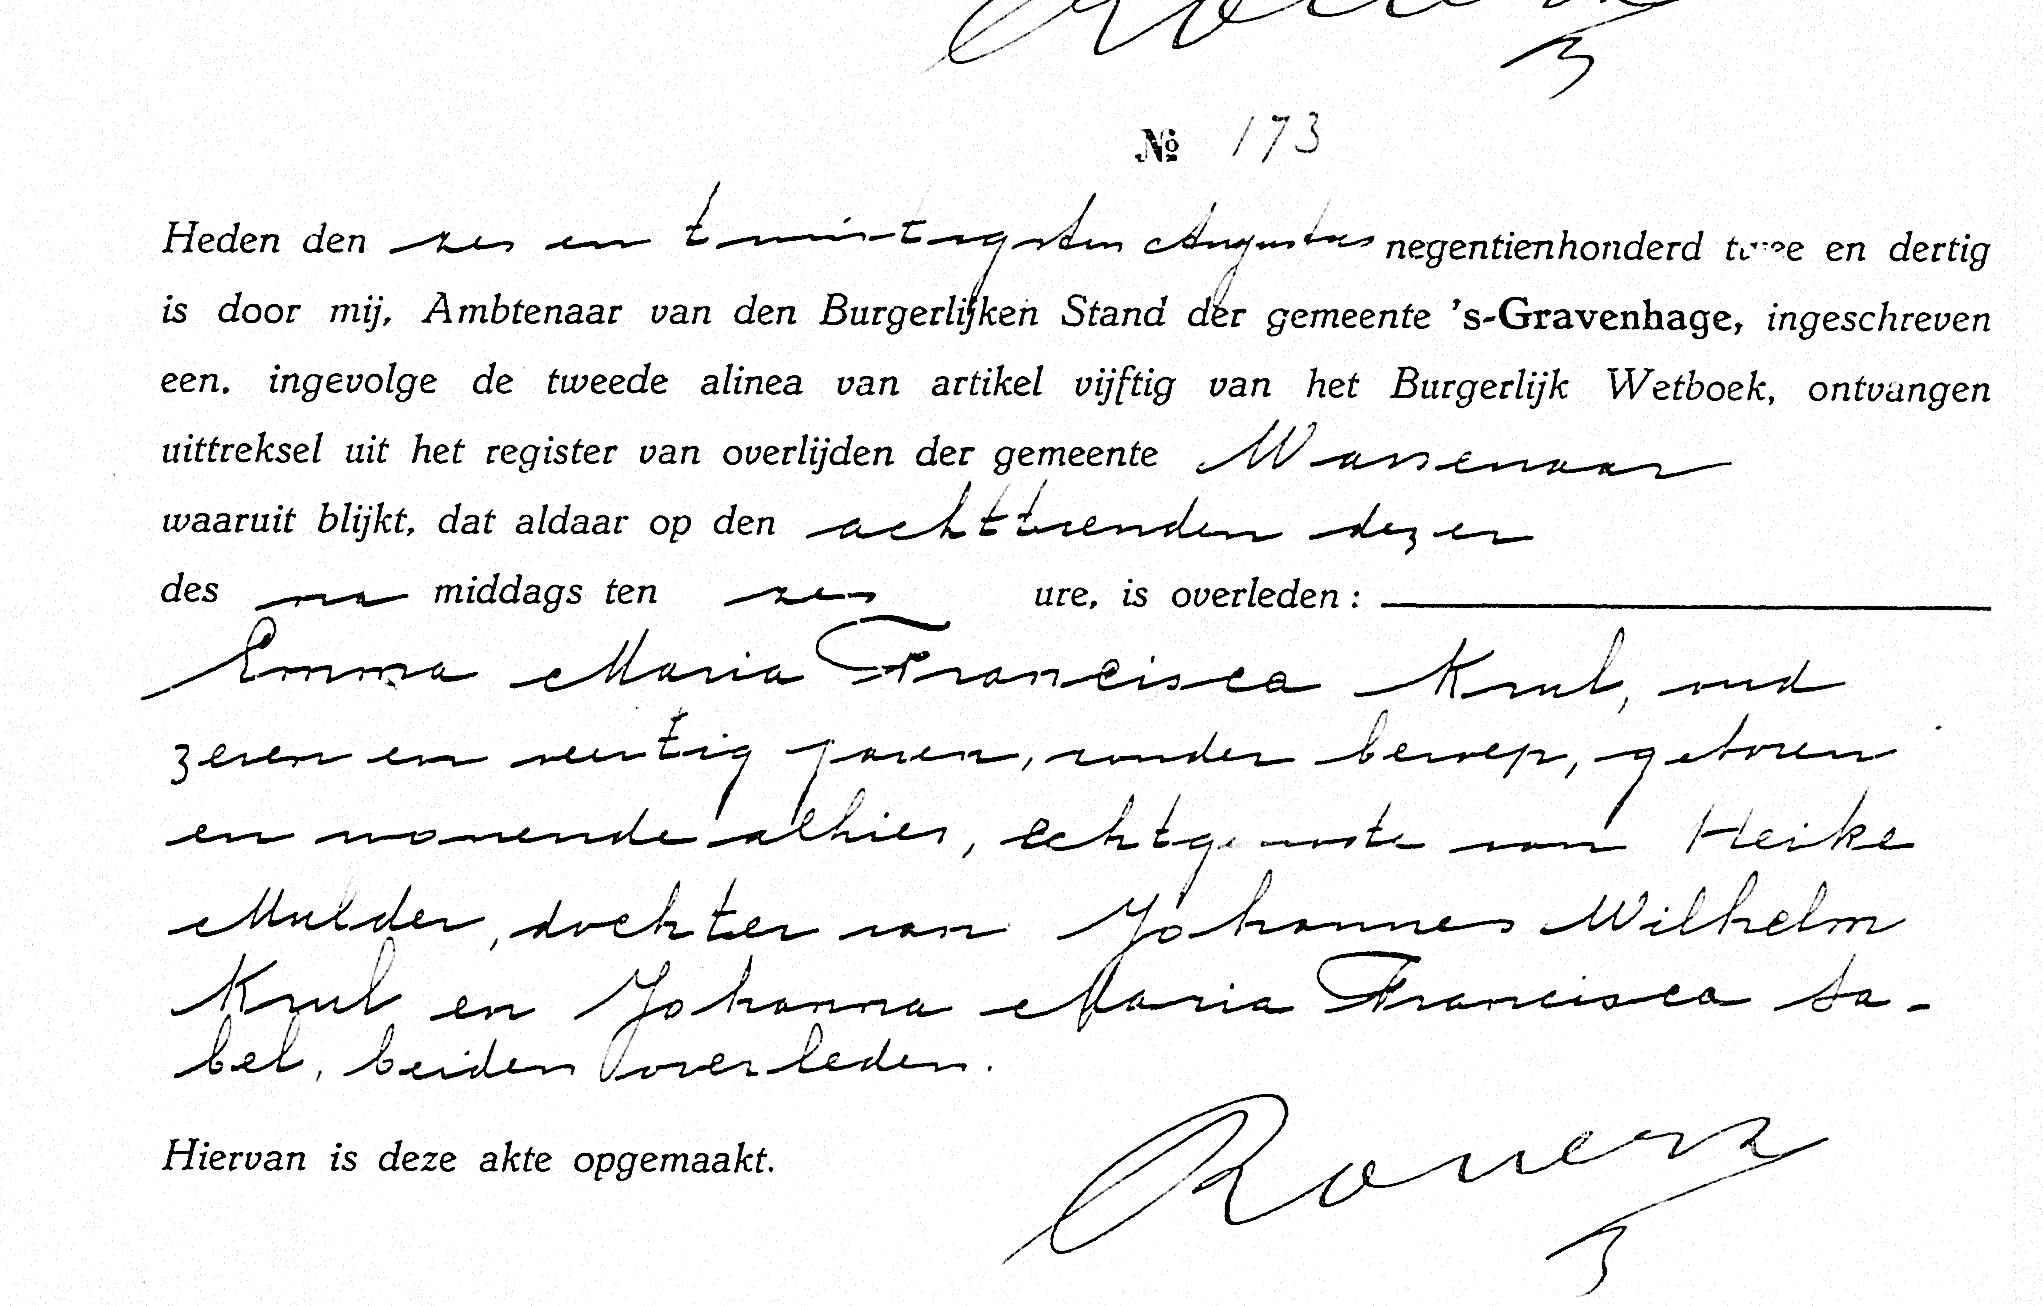 № 173
Heden den zes en twintigsten Augustus negentienhonderd twee en dertig
is door mij, Ambtenaar van den Burgerlijken Stand der gemeente 's-Gravenhage, ingeschreven
een, ingevolge de tweede alinea van artikel vijftig van het Burgerlijk Wetboek, ontvangen
uittreksel uit het register van overlijden der gemeente Wassenaar
waaruit blijkt, dat aldaar op den achttienden dezer
des na middags ten zes ure, is overleden:
Emma Maria Francisca Krul, oud
zeven en veertig jaren, zonder beroep, geboren
en wonende alhier, echtgenoote van Heike
Mulder, dochter van Johannes Wilhelm
Krul en Johanna Maria Francisca Sa-
bel, beiden overleden.
Hiervan is deze akte opgemaakt.